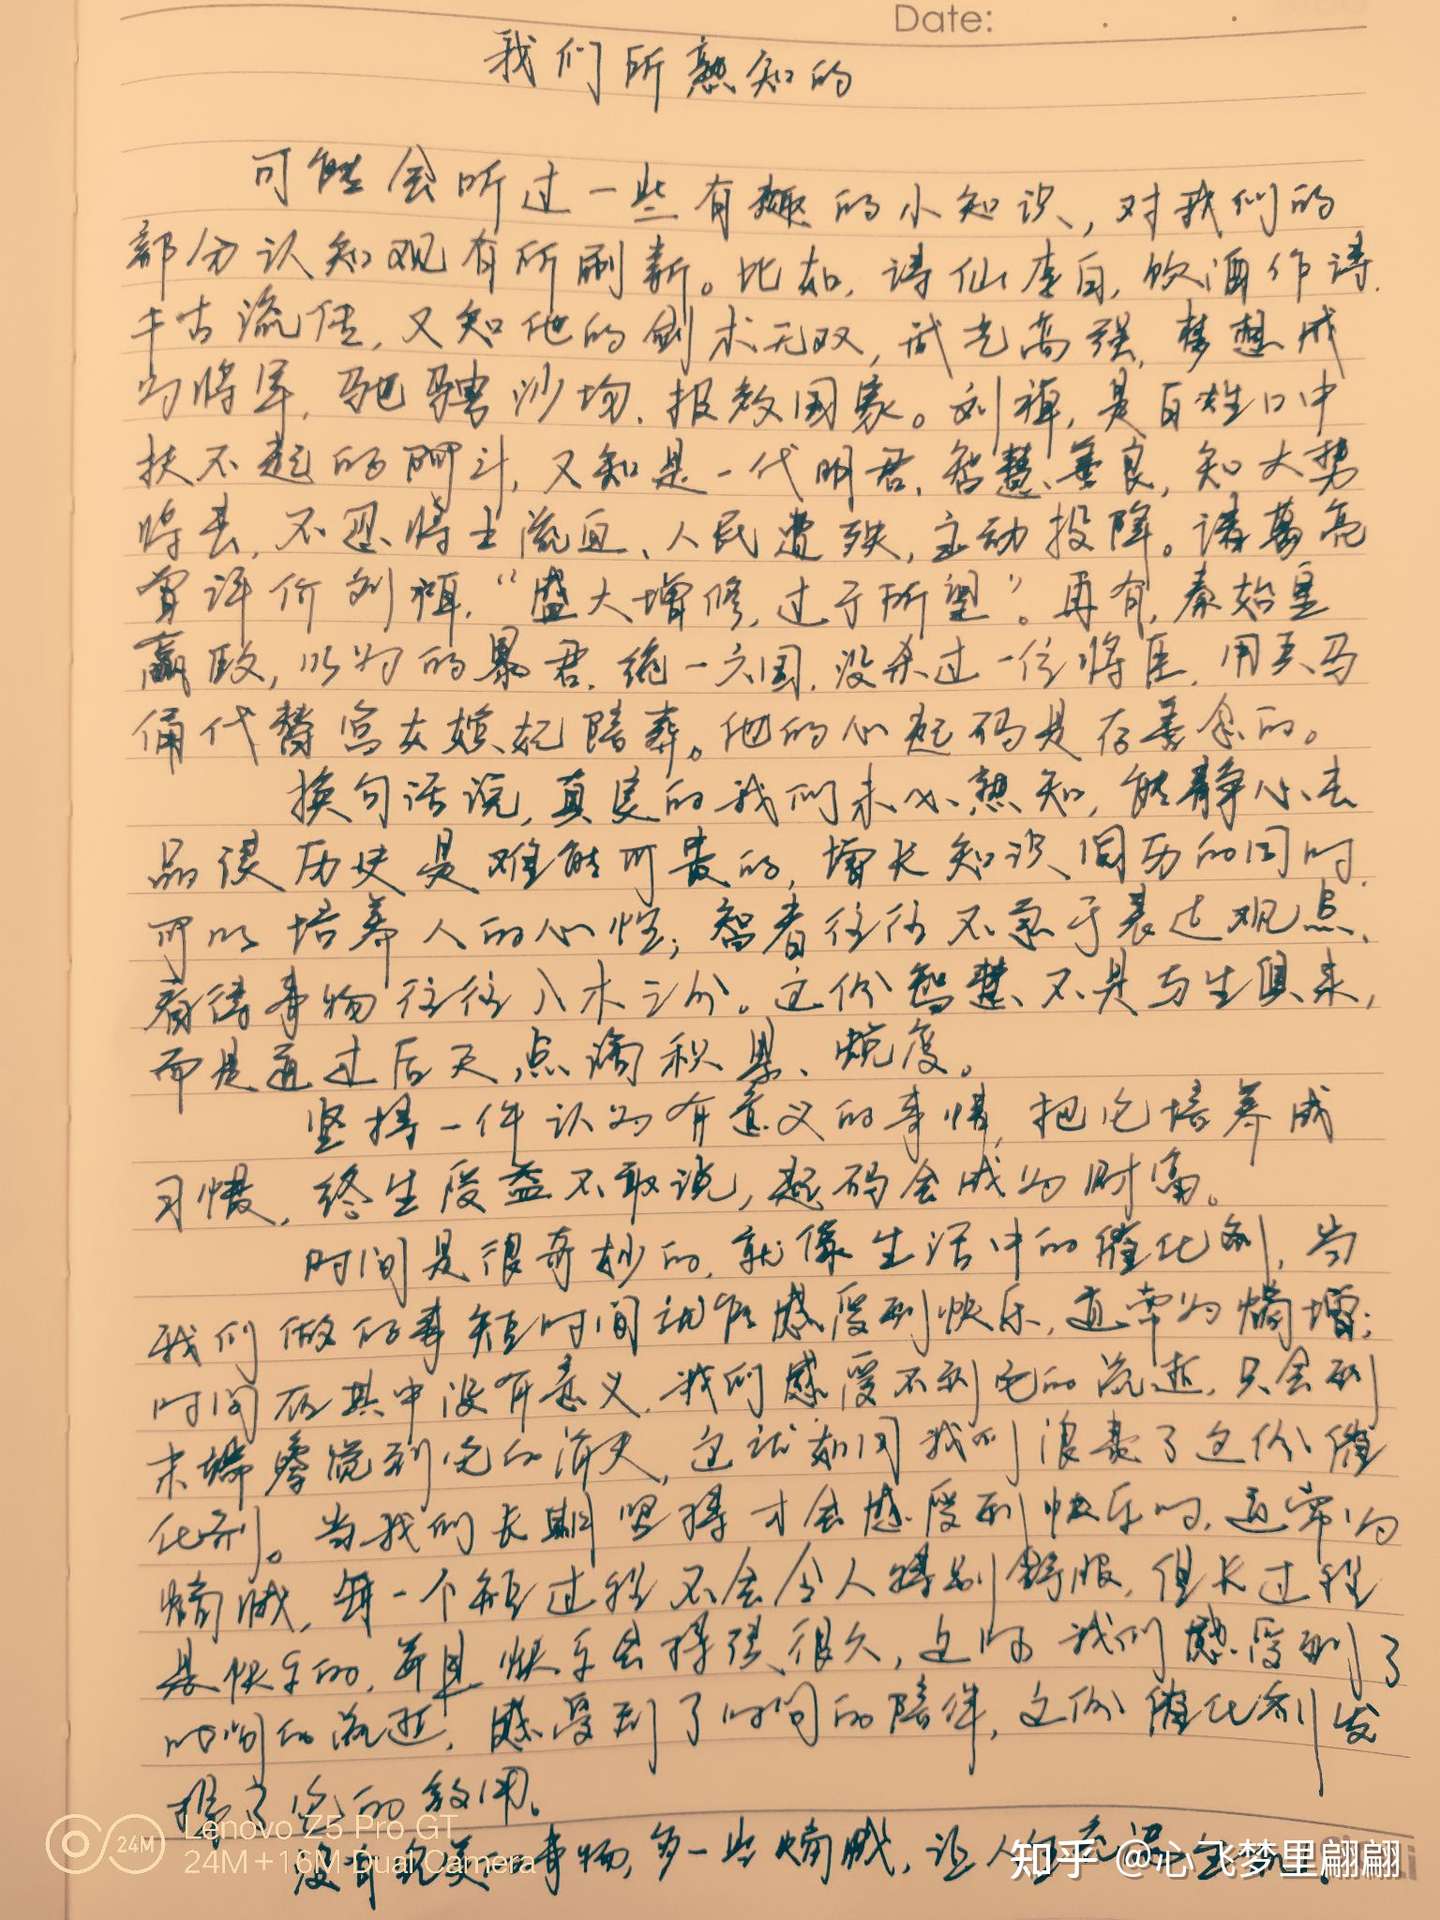 Date:
我们所熟知的
可能会听过一些有趣的小知识，对我们的
部分认知观有所刷新。比如，诗仙李白，饮酒作诗，
千古流传，又知他的剑术无双，武艺高强，梦想成
为将军，驰骋沙场，报效国家。刘禅，是百姓口中
扶不起的阿斗，又知是一代明君，智慧、善良，知大势
将去，不忍将士流血、人民遭殃，主动投降。诸葛亮
曾评价刘禅，“盛大增修，过于所望”。再有，秦始皇
嬴政，以为的暴君，统一六国，没杀过一位将臣，用兵马
俑代替宫女嫔妃陪葬。他的心起码是存善念的。
换句话说，真实的我们未必熟知，能静心去
品读历史是难能可贵的，增长知识、阅历的同时，
可以培养人的心性；智者往往不急于表达观点，
看待事物往往入木三分。这份智慧不是与生俱来，
而是通过后天，点滴积累、蜕变。
坚持一件认为有意义的事情，把它培养成
习惯，终生受益不敢说，起码会成为财富。
时间是很奇妙的，就像生活中的催化剂，当
我们做的事短时间就能感受到快乐，通常为熵增；
时间在其中没有意义，我们感受不到它的流逝，只会到
末端察觉到它的消失，这就如同我们浪费了这份催
化剂。当我们长期坚持才会感受到快乐时，通常为
熵减，每一个短过程不会令人特别舒服，但长过程
是快乐的，并且快乐会持续很久，这时我们感受到了
时间的流逝，感受到了时间的陪伴，这份催化剂发
挥了它的效用。
没有完美的事物，多一些熵减，让人生充满
Lenovo Z5 Pro GT
24M
24M+16M Dual Camera
知乎 @心飞梦里翩翩